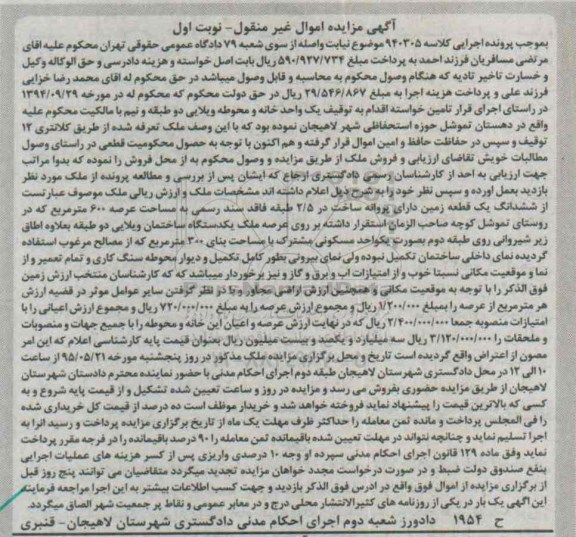 آگهی مزایده اموال غیر منقول- نوبت اول
بموجب پرونده اجرایی کلاسه ۹۴۰۳۰۵ موضوع نیابت واصله از سوی شعبه ۷۹ دادگاه عمومی حقوقی تهران محکوم علیه اقای
مرتضی مسافریان فرزند احمد به پرداخت مبلغ ۵۹۰/۹۲۷/۷۳۴ ریال بابت اصل خواسته و هزینه دادرسی و حق الوکاله وکیل
و خسارت تاخیر تادیه که هنگام وصول محکوم به محاسبه و قابل وصول میباشد در حق محکوم له اقای محمد رضا خزایی
فرزند علی و پرداخت هزینه اجرا به مبلغ ۲۹/۵۴۶/۸۶۷ ریال در حق دولت محکوم که محکوم له در مورخه ۱۳۹۴/۰۹/۲۹
در راستای اجرای قرار تامین خواسته اقدام به توقیف یک واحد خانه و محوطه ویلایی دو طبقه و نیم با مالکیت محکوم علیه
واقع در دهستان تموشل حوزه استحفاظی شهر لاهیجان نموده بود که با این وصف ملک تعرفه شده از طریق کلانتری ۱۲
توقیف و سپس در حفاظت حافظ و امین اموال قرار گرفته و هم اکنون با توجه به حصول محکومیت قطعی در راستای وصول
مطالبات خویش تقاضای ارزیابی و فروش ملک از طریق مزایده و وصول محکوم به از محل فروش را نموده که بدوا مراتب
جهت ارزیابی به احد از کارشناسان رسمی دادگستری ارجاع که ایشان پس از بررسی و مطالعه پرونده از ملک مورد نظر
بازدید بعمل اورده و سپس نظر خود را به شرح ذیل اعلام داشته اند مشخصات ملک و ارزش ریالی ملک موصوف عبارتست
از ششدانگ یک قطعه زمین دارای پروانه ساخت در ۲/۵ طبقه فاقد سند رسمی به مساحت عرصه ۶۰۰ مترمربع که در
روستای تموشل کوچه صاحب الزمان استقرار داشته بر روی عرصه ملک یکدستگاه ساختمان ویلایی دو طبقه بعلاوه اطاق
زیر شیروانی روی طبقه دوم بصورت یکواحد مسکونی مشترک با مساحت بنای ۳۰۰ مترمربع که از مصالح مرغوب استفاده
گردیده نمای داخلی ساختمان تکمیل نبوده ولی نمای بیرونی بطور کامل تکمیل و دیوار محوطه سنگ کاری و تمام تعمیر و از
نما و موقعیت مکانی نسبتا خوب و از امتیازات اب و برق و گاز و نیز برخوردار میباشد که که کارشناسان منتخب ارزش زمین
فوق الذکر را با توجه به موقعیت مکانی و همچنین ارزش اراضی مجاور و با در نظر گرفتن سایر عوامل موثر در قضیه ارزش
هر مترمربع از عرصه را بمبلغ ۱/۲۰۰/۰۰۰ ریال و مجموع ارزش عرصه را به مبلغ ۷۲۰/۰۰۰/۰۰۰ ریال و مجموع ارزش اعیانی را با
امتیازات منصوبه جمعا ۲/۴۰۰/۰۰۰/۰۰۰ ریال که در نهایت ارزش عرصه و اعیان این خانه و محوطه را با جمیع جهات و منصوبات
و ملحقات را ۳/۱۲۰/۰۰۰/۰۰۰ ریال سه میلیارد و یکصد و بیست میلیون ریال بعنوان قیمت پایه کارشناسی اعلام که این امر
مصون از اعتراض واقع گردیده است تاریخ و محل برگزاری مزایده ملک مذکور در روز پنجشنبه مورخه ۹۵/۰۵/۲۱ از ساعت
۱۰ الی ۱۲ در محل دادگستری شهرستان لاهیجان طبقه دوم اجرای احکام مدنی با حضور نماینده محترم دادستان شهرستان
لاهیجان از طریق مزایده حضوری بفروش می رسد و مزایده در روز و ساعت تعیین شده تشکیل و از قیمت پایه شروع و به
کسی که بالاترین قیمت را پیشنهاد نماید فروخته خواهد شد و خریدار موظف است ده درصد از قیمت کل خریداری شده
را فی المجلس پرداخت و مانده ثمن معامله را حداکثر ظرف مهلت یک ماه از تاریخ برگزاری مزایده پرداخت و رسید انرا به
اجرا تسلیم نماید و چنانچه نتواند در مهلت تعیین شده باقیمانده ثمن معامله را ۹۰ درصد باقیمانده را در فرجه مقرر پرداخت
نماید وفق ماده ۱۲۹ قانون اجرای احکام مدنی سپرده او وجه ۱۰ درصدی واریزی پس از کسر هزینه های عملیات اجرایی
بنفع صندوق دولت ضبط و در صورت درخواست مجدد خواهان مزایده تجدید میگردد متقاضیان می توانند پنج روز قبل
از برگزاری مزایده از اموال فوق واقع در ادرس فوق الذکر بازدید و جهت کسب اطلاعات بیشتر به این اجرا مراجعه فرمایند
این اگهی یک بار در یکی از روزنامه های کثیرالانتشار محلی درج و در معابر عمومی و نقاط پر جمعیت شهر الصاق میگردد.
ح ۱۹۵۴ دادورز شعبه دوم اجرای احکام مدنی دادگستری شهرستان لاهیجان- قنبری